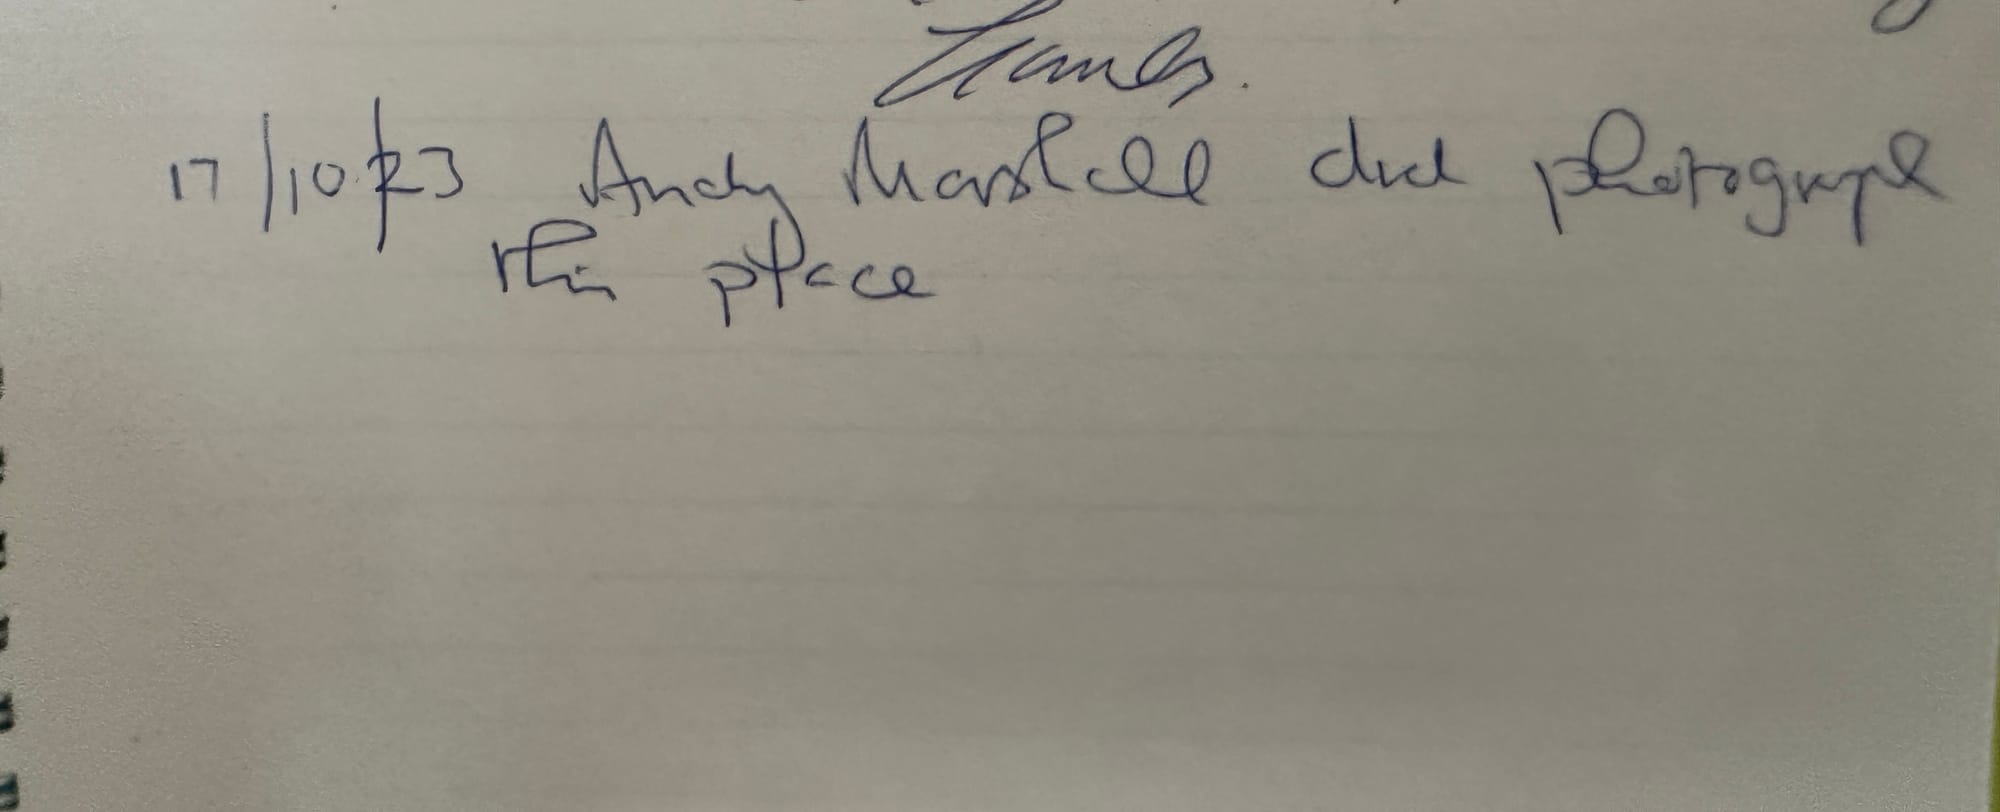 17/10/23 Andy Marshall did photograph
this place